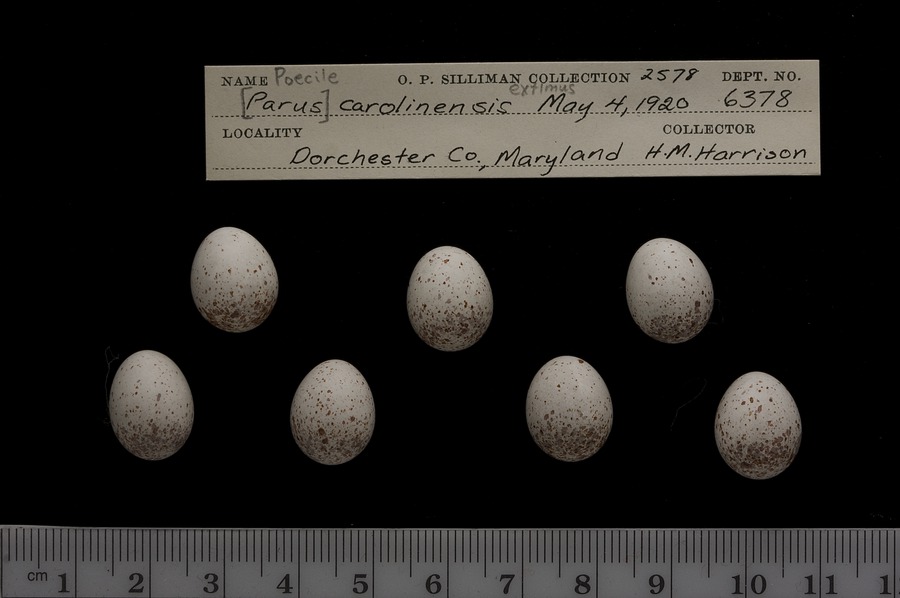 NAME Poecile O. P. SILLIMAN COLLECTION 2578 DEPT. NO.
[Parus] carolinensis extimus May 4, 1920 6378
LOCALITY COLLECTOR
Dorchester Co., Maryland H.M. Harrison
cm 1 2 3 4 5 6 7 8 9 10 11 1